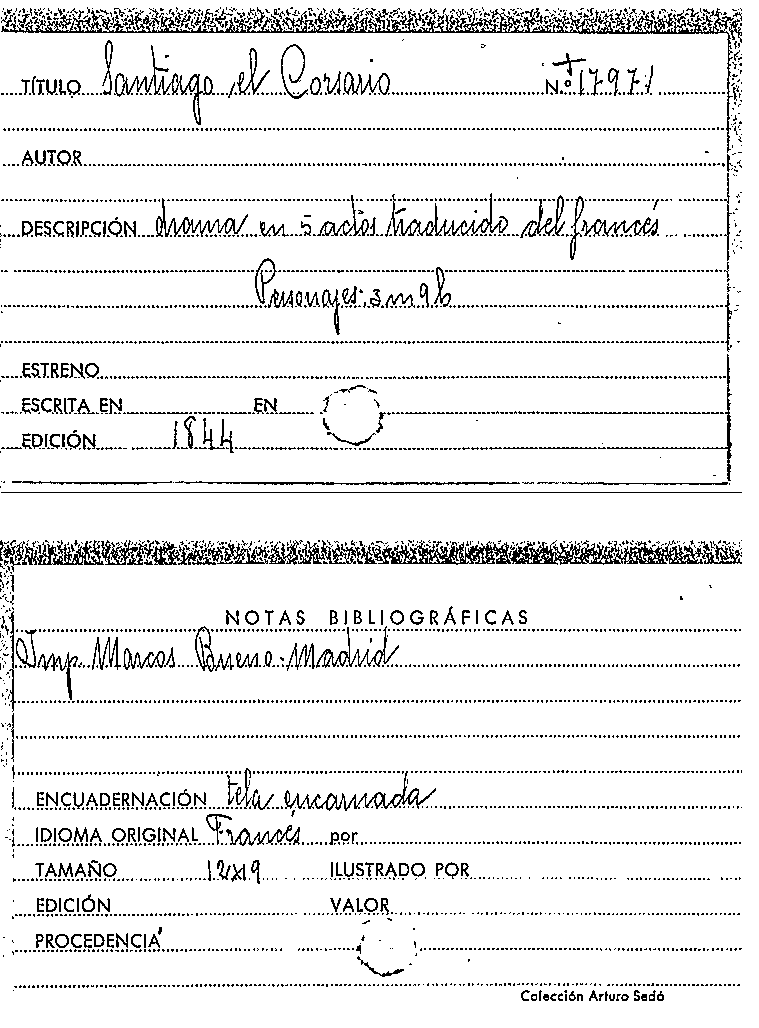 TÍTULO Santiago el Corsario N.º 17971
AUTOR
DESCRIPCIÓN drama en 5 actos traducido del francés
Personajes: 3 m 9 h
ESTRENO
ESCRITA EN EN
EDICIÓN 1844
NOTAS BIBLIOGRÁFICAS
Imp. Marcos Bueno. Madrid
ENCUADERNACIÓN tela encarnada
IDIOMA ORIGINAL Francés por
TAMAÑO 12x19 ILUSTRADO POR
EDICIÓN VALOR
PROCEDENCIA
Colección Arturo Sedó